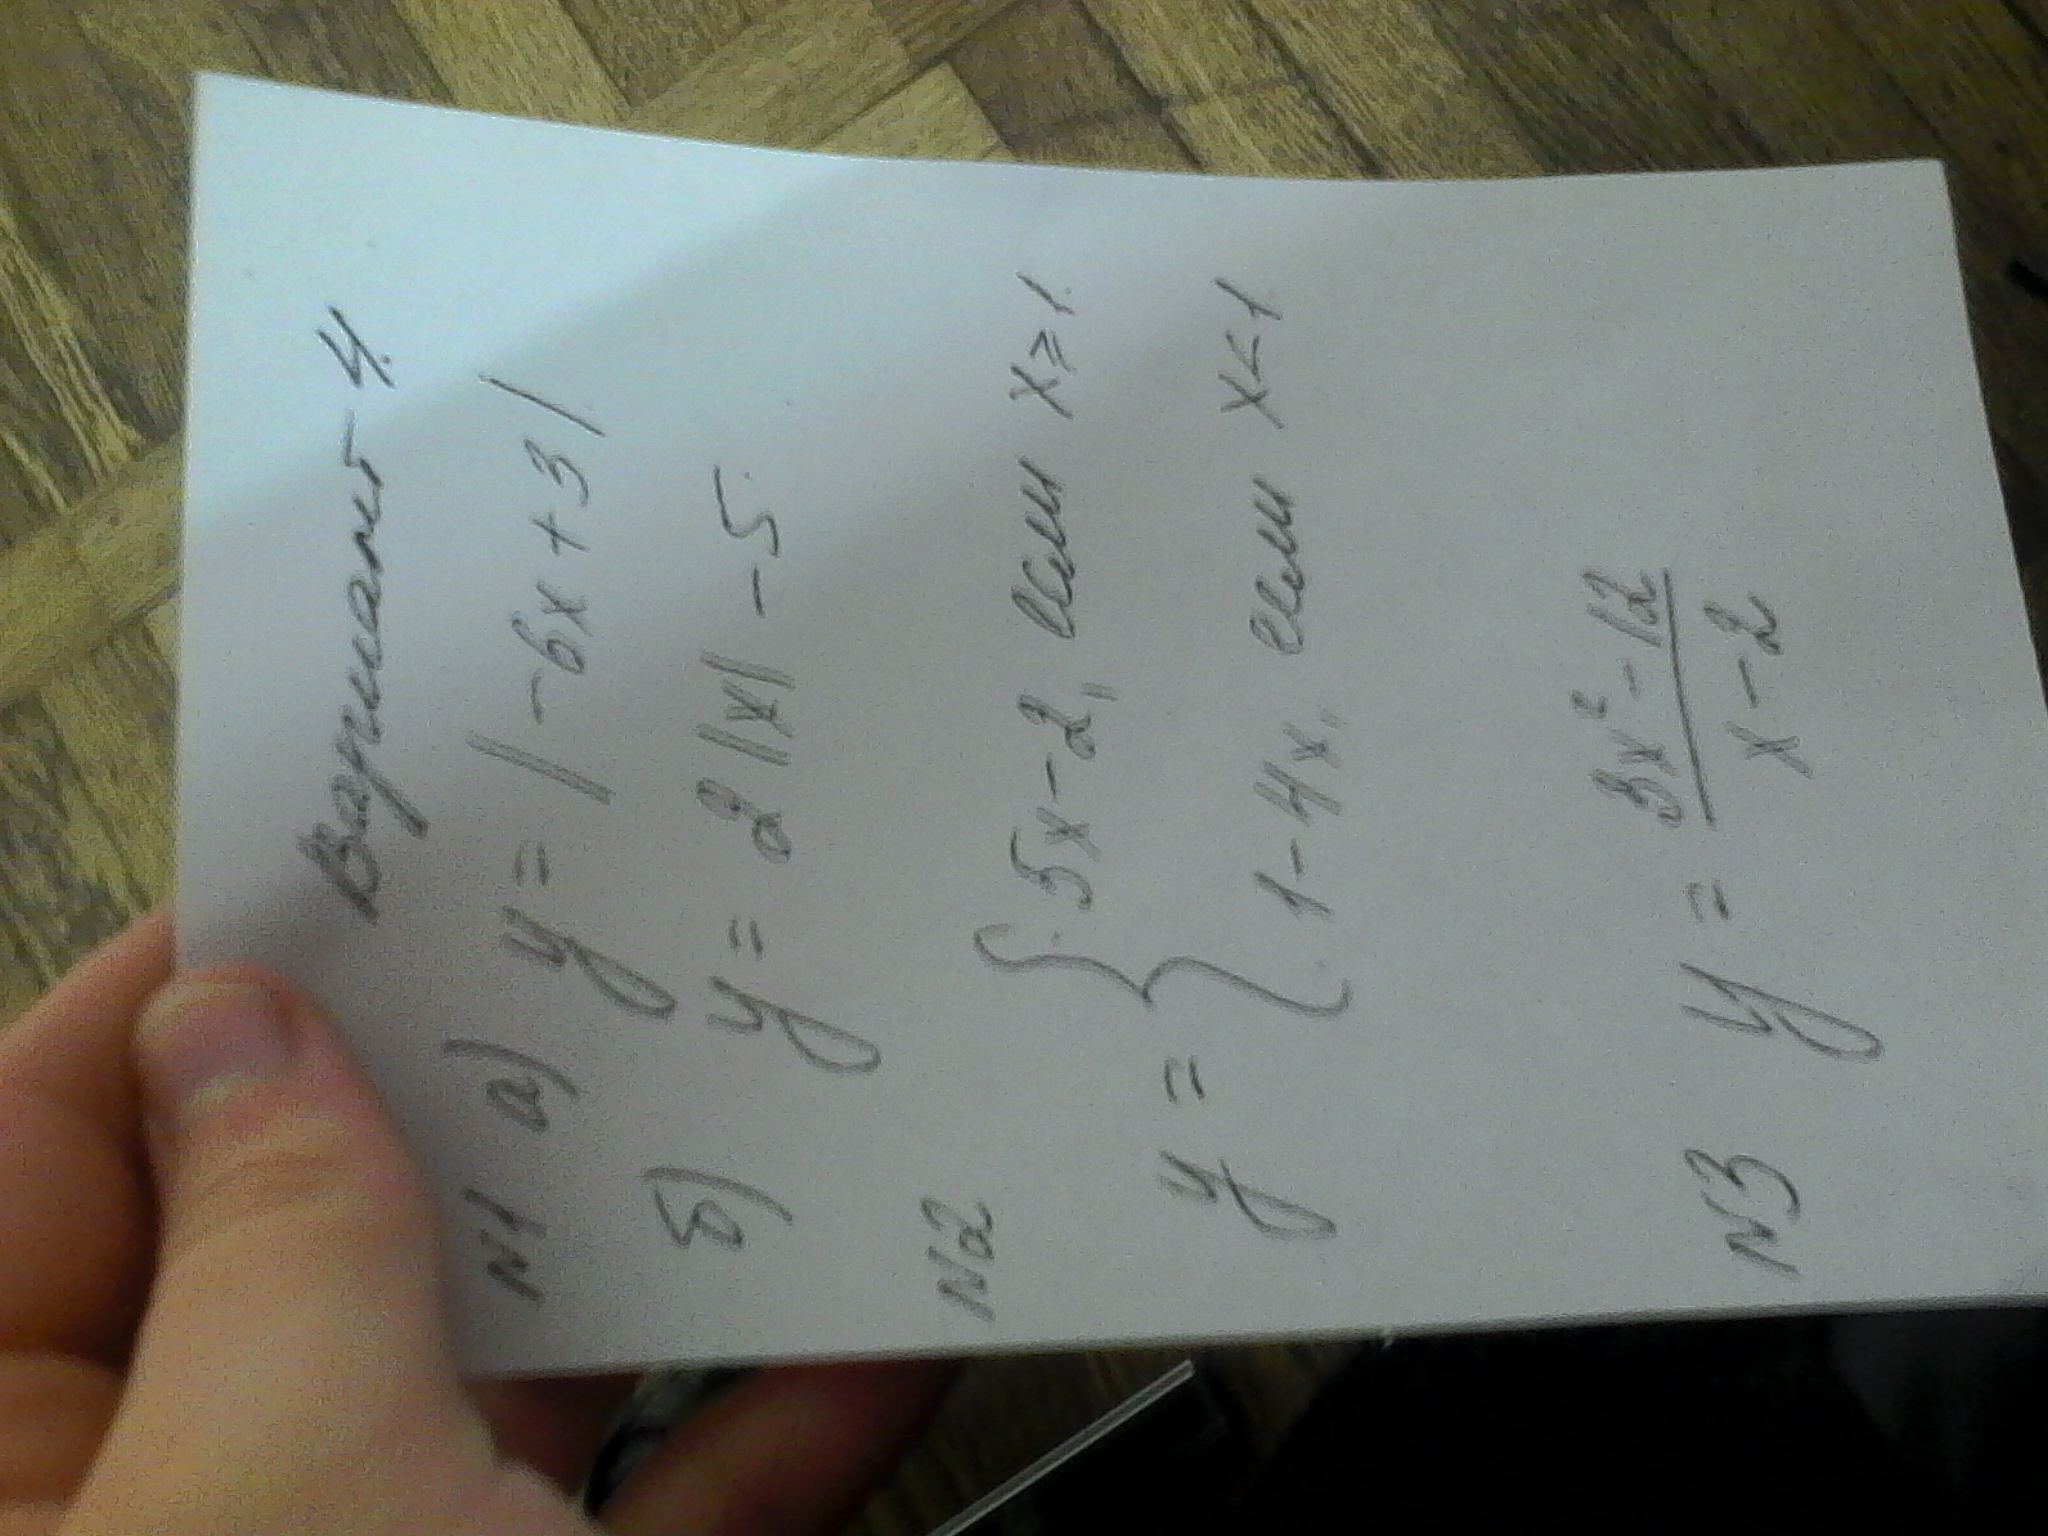 Вариант 4.
N1 а) y = |-6x+3|
б) y = 2|x| -5.
N2
y = { 5x-2, если x⩾1.
1-4x, если x<1
N3 y = \frac{3x²-12}{x-2}